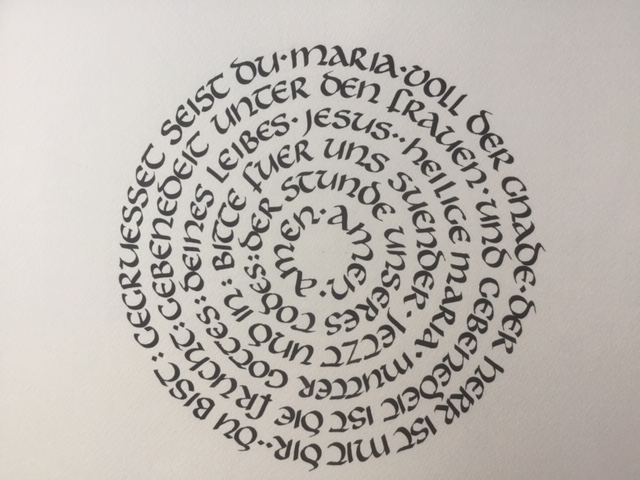 GEGRUESSET SEIST DU·MARIA·VOLL DER GNADE·DER HERR IST MIT DIR··DU BIST:
GEBENEDEIT UNTER DEN FRAUEN·UND GEBENEDEIT IST DIE FRUCHT:
DEINES LEIBES·JESUS··HEILIGE MARIA·MUTTER GOTTES:
BITTE FUER UNS SUENDER·JETZT UND IN:
DER STUNDE UNSERES TODES:
AMEN·AMEN·